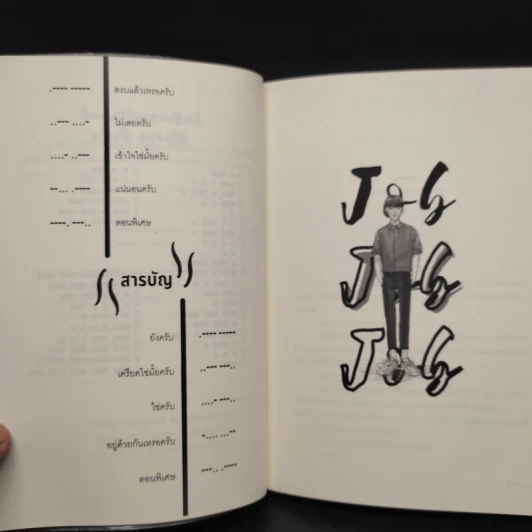 .---- ----- สงบแล้วเหรอครับ
..--- ....- ไม่เลยครับ
....- ..--- เข้าใจใช่มั้ยครับ
--... .---- แน่นอนครับ
----. ---.. ตอนพิเศษ
สารบัญ
ยังครับ .---- -----
เครียดใช่มั้ยครับ ..--- ---..
ใช่ครับ ....- ---..
อยู่ด้วยกันเหรอครับ -.... ...--
ตอนพิเศษ ---.. .----